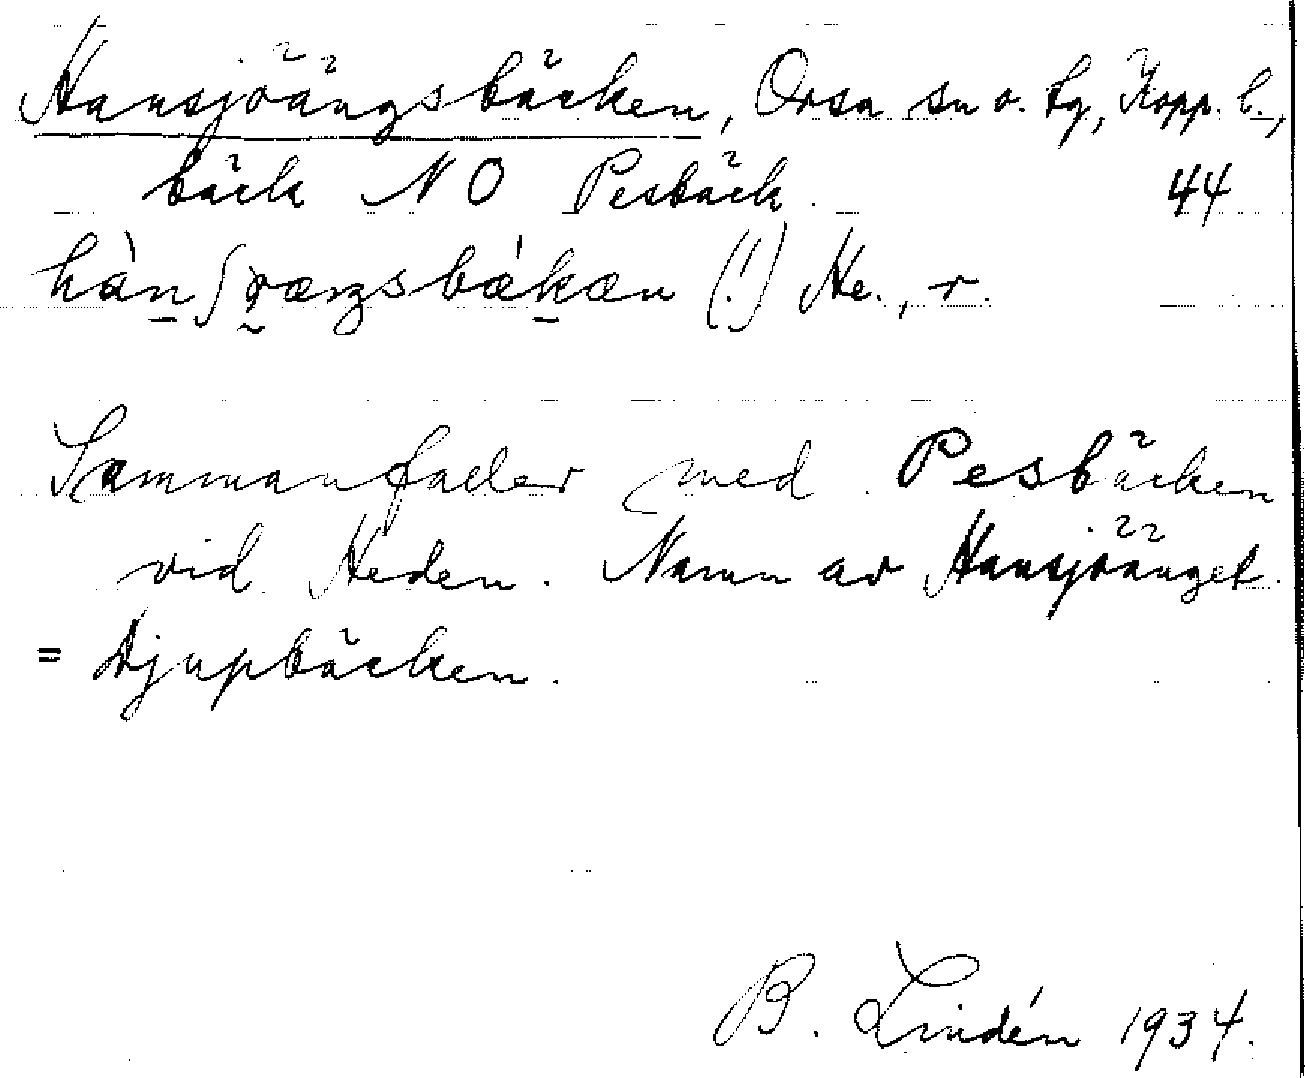 Hansjöängsbäcken, Orsa sn o. tg, Kopp. l.,
bäck NO Pesbäck. 44
(!) He., r.
Sammanfaller med Pesbäcken
vid Heden. Namn av Hansjöänget.
= Djupbäcken.
B. Lindén 1934.